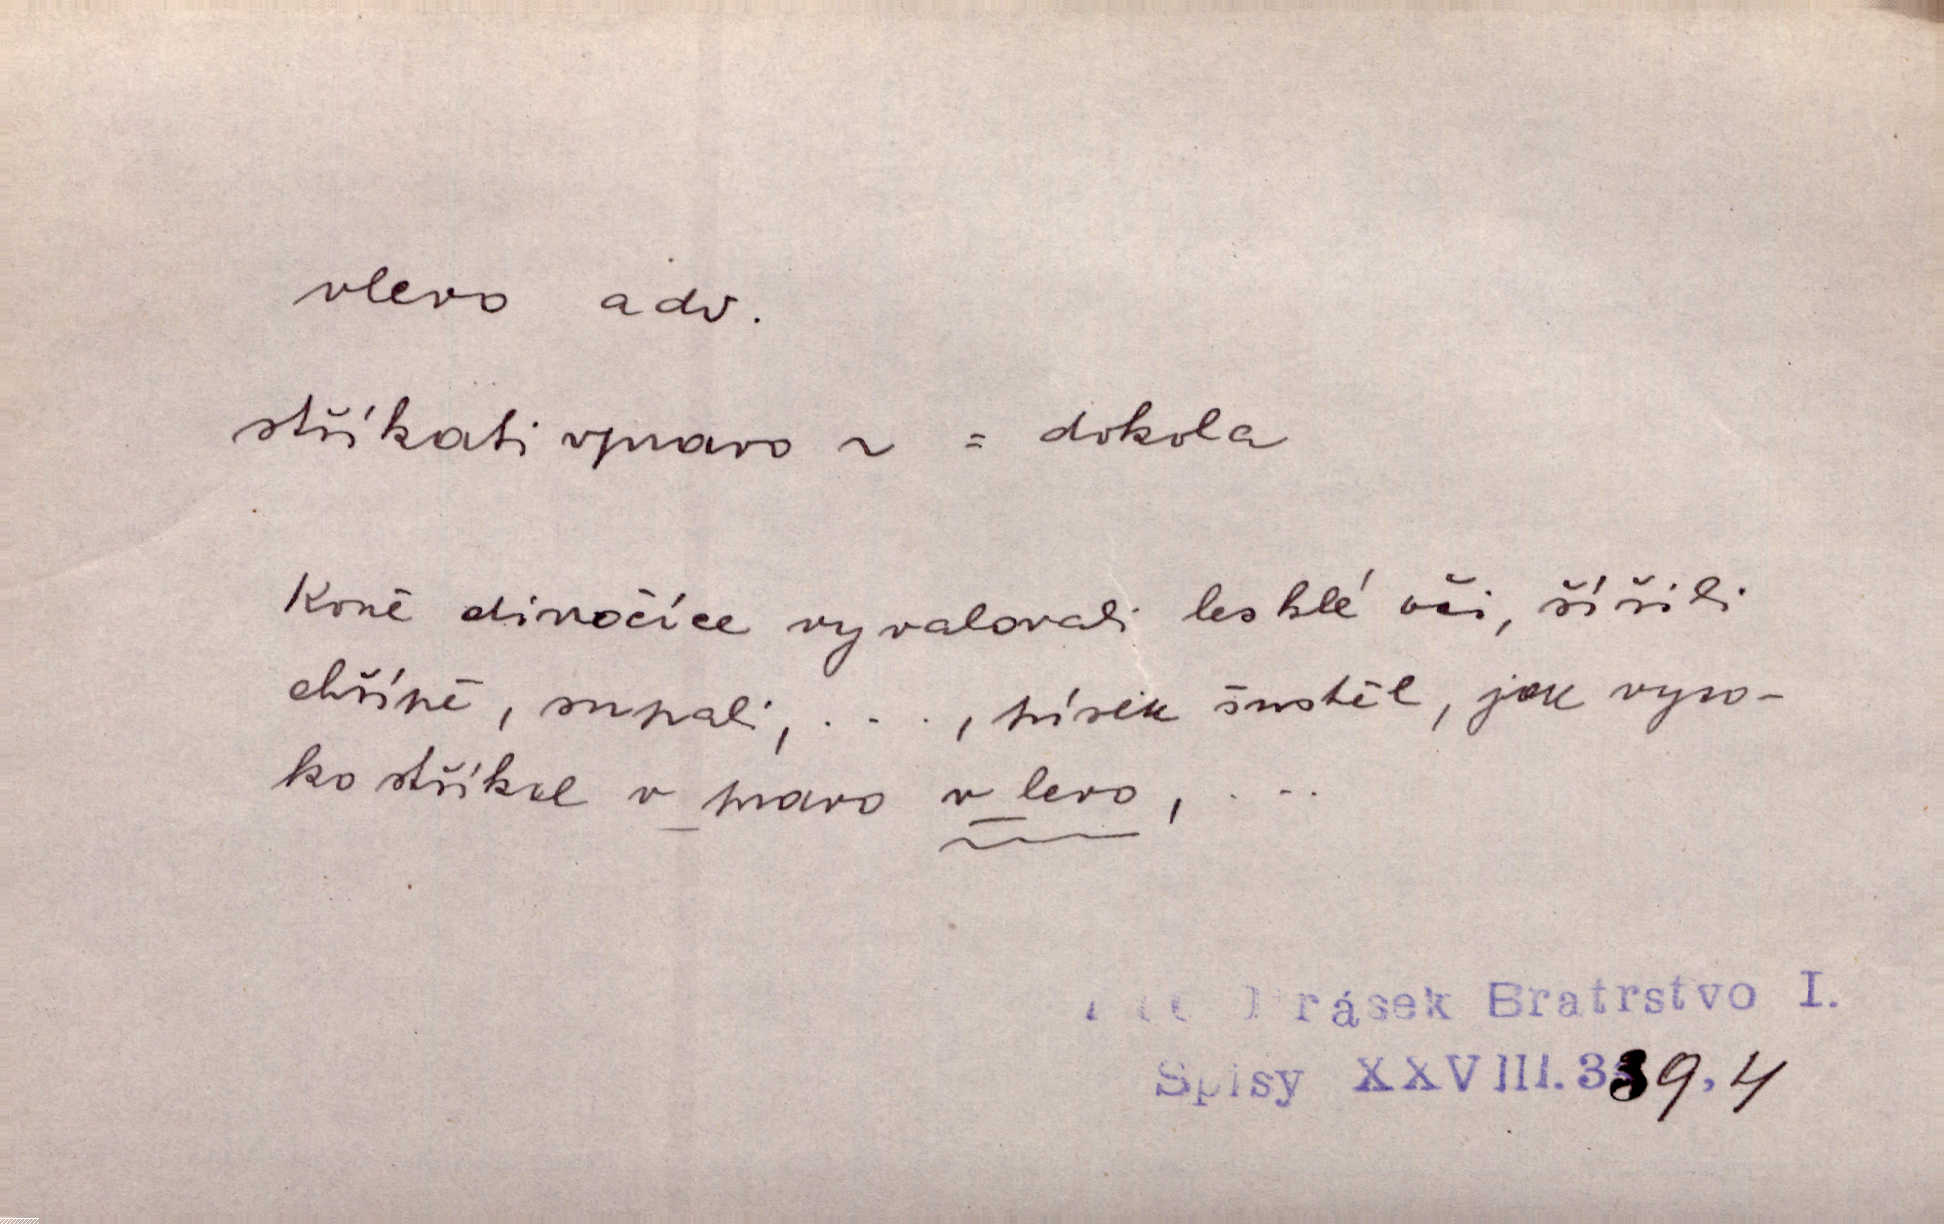 vlevo adv.
stříkati vpravo ~ = dokola
Koně divočíce vyvalovali lesklé oči, šířili
chřípě, supali, . . . , písek šustěl, jak vyso-
ko stříkal v_pravo v_levo, . . .
rásek Bratrstvo I.
Spisy XXVIII. 339,4